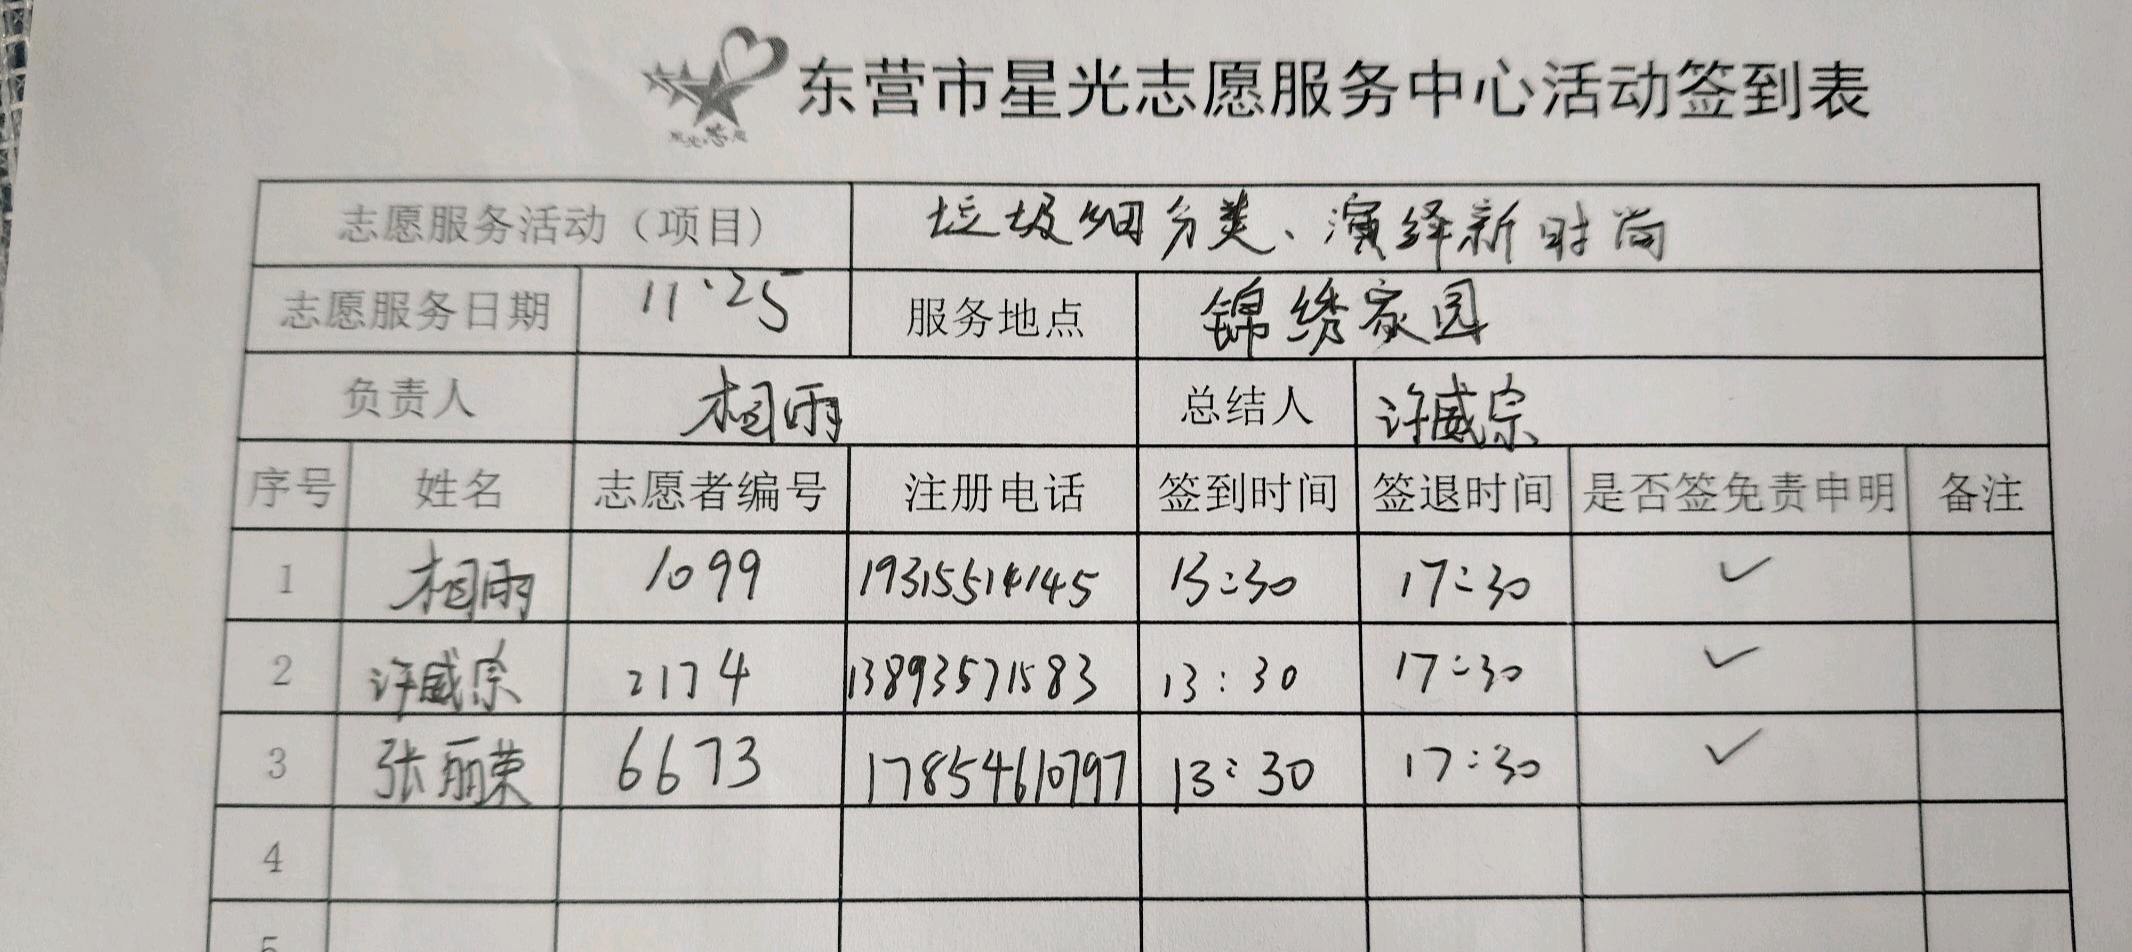 东营市星光志愿服务中心活动签到表
志愿服务活动（项目） 垃圾细分类、演绎新时尚
志愿服务日期 11·25 服务地点 锦绣家园
负责人 相雨 总结人 许威宗
序号 姓名 志愿者编号 注册电话 签到时间 签退时间 是否签免责申明 备注
1 相雨 1099 19315514145 13:30 17:30 ✓
2 许威宗 2174 13893571583 13:30 17:30 ✓
3 张丽荣 6673 17854610797 13:30 17:30 ✓
4
5